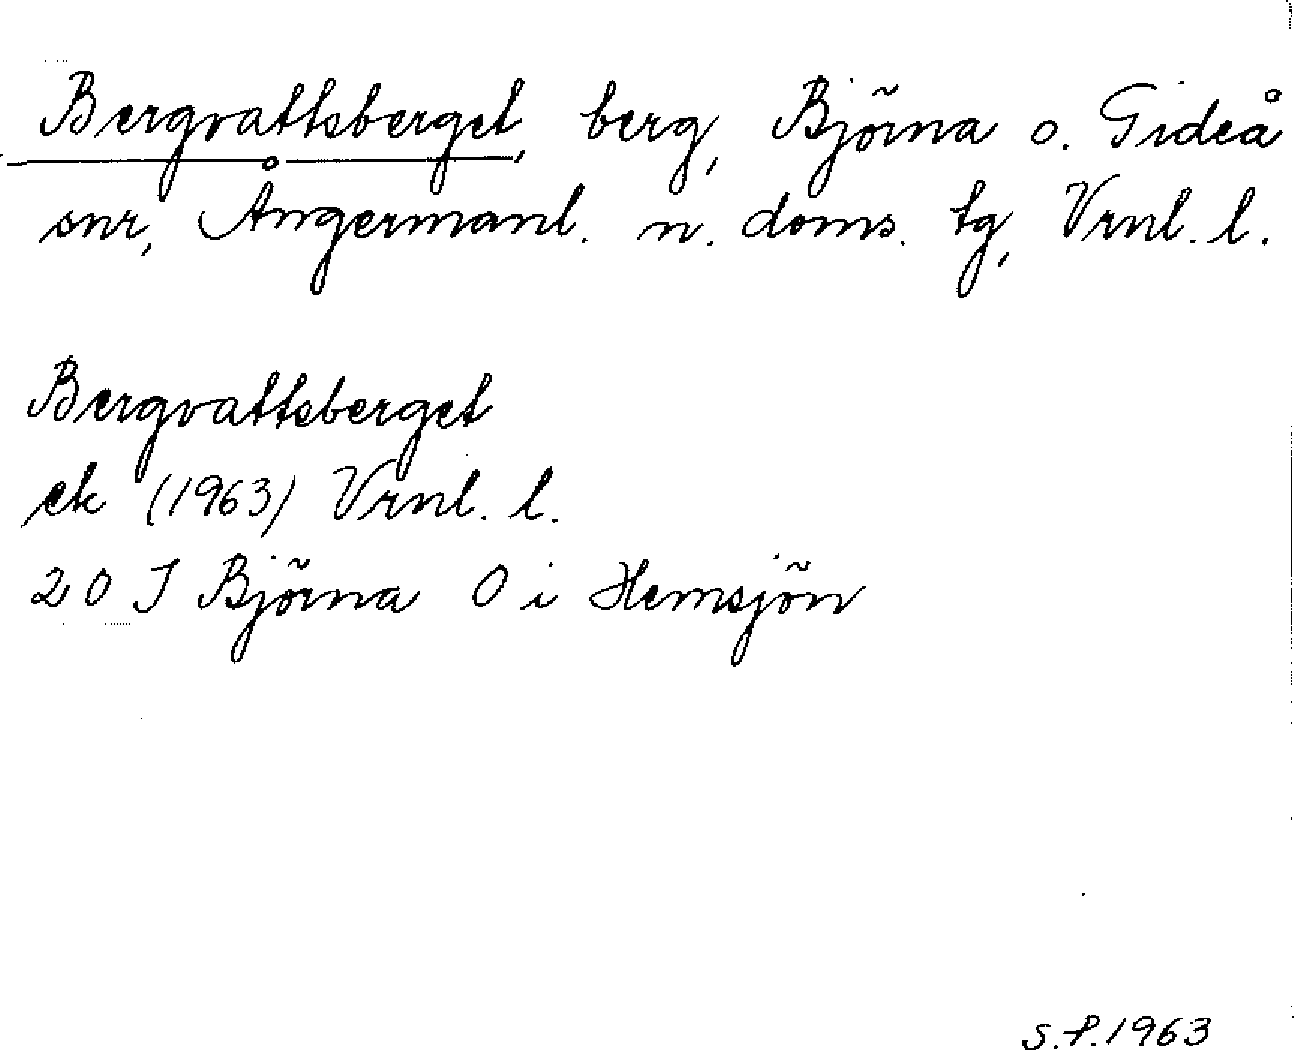 Bergvattsberget, berg, Björna o. Gideå
snr, Ångermanl. n. doms. tg, Vrnl. l.
Bergvattsberget
ek (1963) Vrnl. l.
20 J Björna O i Hemsjön
S.P.1963